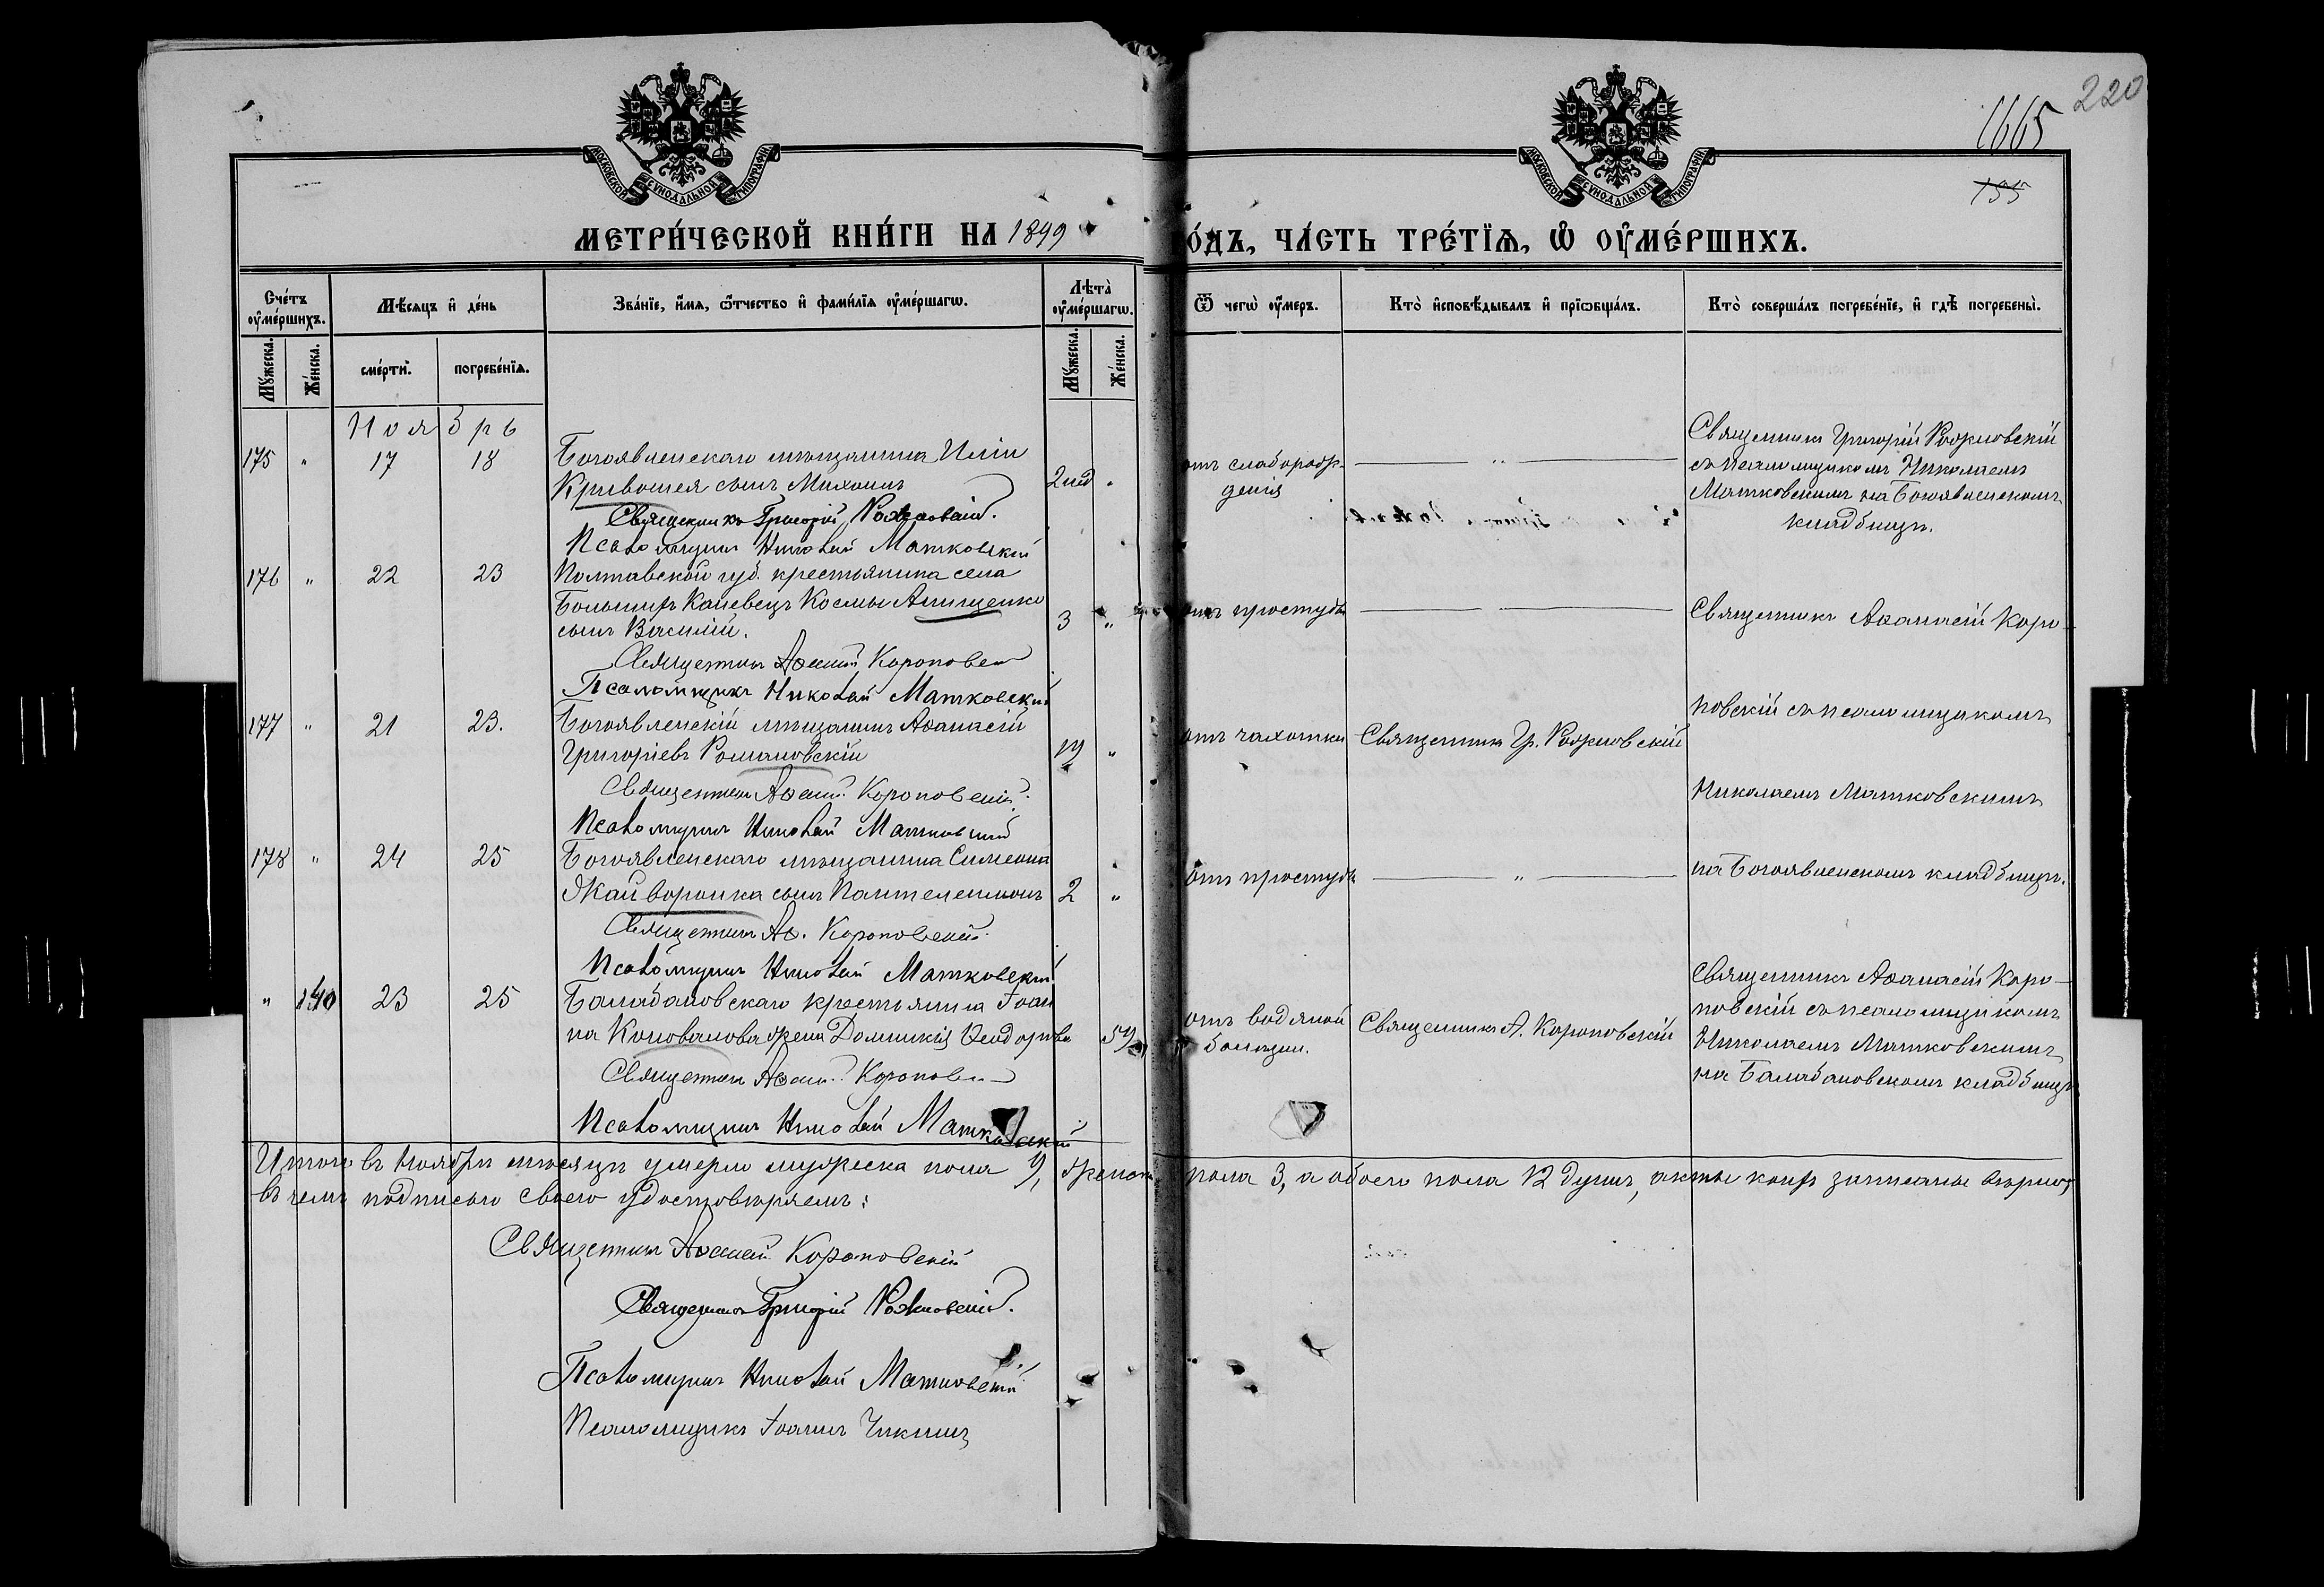 220
1665
155
МОСКОВСКОЙ СѴНОДАЛЬНОЙ ТИПОГРАФІИ
МОСКОВСКОЙ СѴНОДАЛЬНОЙ ТИПОГРАФІИ
МЕТРИ́ЧЕСКОЙ КНИ́ГИ НА 1899
О́ДЪ, ЧА́СТЬ ТРЕ́ТІѦ, Ѡ ОУМЕ́РШИХЪ.
Сче́тъ оумершихъ.
Мѣсяцъ и де́нь
Зва́нїе, и́мѧ, ѻ҆тчество и фами́лїѧ оуме́ршагѡ.
Лѣта̀ оуме́ршагѡ.
Ѿ чегѡ̀ оу́меръ.
Кто̀ исповѣ́дывалъ и прїѡбща́лъ.
Кто̀ соверша́лъ погребе́нїе, и гдѣ̀ погребены̀.
Му́жеска.
Же́нска.
сме́рти.
погребе́нїѧ.
Му́жеска.
Же́нска.
Ноябрь
175 " 17 18 Богоявленскаго мѣщанина Иліи
Кривошея сынъ Михаилъ 2 нед "
Священникъ Григорій Рожновскій.
Псаломщикъ Николай Матковскій
отъ слаборож-
денія
"
Священникъ Григорій Рожновскій
съ псаломщикомъ Николаемъ
Матковскимъ на Богоявленскомъ
кладбищѣ.
176 " 22 23 Полтавской губ. крестьянина села
Большихъ Каневецъ Космы Анищенко
сынъ Василій. 3 "
Священникъ Аѳанасій Короповскій
Псаломщикъ Николай Матковскій
отъ простуды
"
Священникъ Аѳанасій Коро-
177 " 21 23. Богоявленскій мѣщанинъ Аѳанасій
Григоріевъ Романовскій 19 "
Священникъ Аѳанасій Короповскій.
Псаломщикъ Николай Матковскій
отъ чахотки
Священникъ Гр. Рожновскій
повскій съ псаломщикомъ
Николаемъ Матковскимъ
178 " 24 25 Богоявленскаго мѣщанина Симеона
Жайворонка сынъ Пантелеимонъ 2 "
Священникъ Аѳ. Короповскій.
Псаломщикъ Николай Матковскій
отъ простуды
"
на Богоявленскомъ кладбищѣ.
" 140 23 25 Балабановскаго крестьянина Іоан
на Коновалова жена Домникія Ѳеодорова 59
Священникъ Аѳан. Короповскій
Псаломщикъ Николай Матковскій
отъ водяной
болѣзни.
Священникъ А. Короповскій
Священникъ Аѳанасій Коро-
повскій съ псаломщикомъ
Николаемъ Матковскимъ
на Балабановскомъ кладбищѣ
Итого въ Ноябрѣ мѣсяцѣ умерло мужеска пола 9, женска пола 3, а обоего пола 12 душъ, акты коихъ записаны вѣрно,
въ чемъ подписью своею удостовѣряемъ:
Священникъ Аѳанасій Короповскій
Священникъ Григорій Рожновскій.
Псаломщикъ Николай Матковскій
Псаломщикъ Іоаннъ Чикинъ